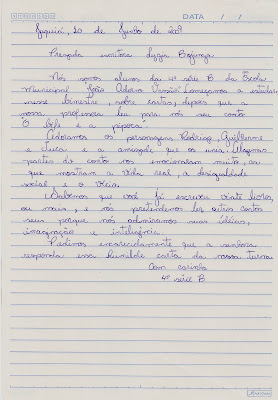 DATA / /
de 2009
Prezada escritora Lygia Bojunga
Nós somos alunos da 4ª série B da Escola
Municipal "João Adorno Vassão". Começamos a estudar
nesse bimestre, sobre cartas, depois que a
nossa professora leu para nós seu conto
O bife e a pipoca.
Adoramos os personagens Rodrigo, Guilherme
e Tuca e a amizade que os unia. Algumas
partes do conto nos emocionaram muito, as
que mostram a vida real, a desigualdade
social e o vício.
Sabemos que você já escreveu vinte livros,
ou mais, e nós pretendemos ler outros contos
seus porque nós admiramos suas idéias,
imaginação e inteligência.
Pedimos encarecidamente que a senhora
responda essa humilde carta da nossa turma
Com carinho
4ª série B